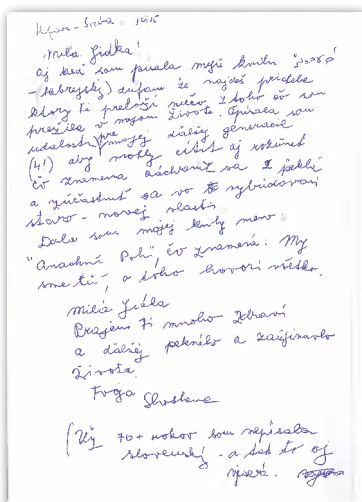 Kfar - Saba 1415
Milá Jidka!
Aj keď som písala moju knihu
- hebrejsky) dúfam že najdeš priateľa
ktorý ti preloží niečo z toho čo som
prežila v mojom živote. Opísala som
udalosti pre mojej ďalšej generácie
(4!) aby mohly cítiť aj rozumeť
čo znamena zachranit sa z pekla
a zúčastniť sa vo vybudovaní
staro - novej vlasti.
Dala som mojej knihy meno:
"Anachnú Poh", čo znamená: My
sme tu", a toho hovorí všetko.
Milá Jidka
Prajem Ti mnoho zdraví
a ďalšej pekného a zaujímavého
života.
Tvoja
(Už 70+ rokov som nepísala
slovenský - a tak to aj